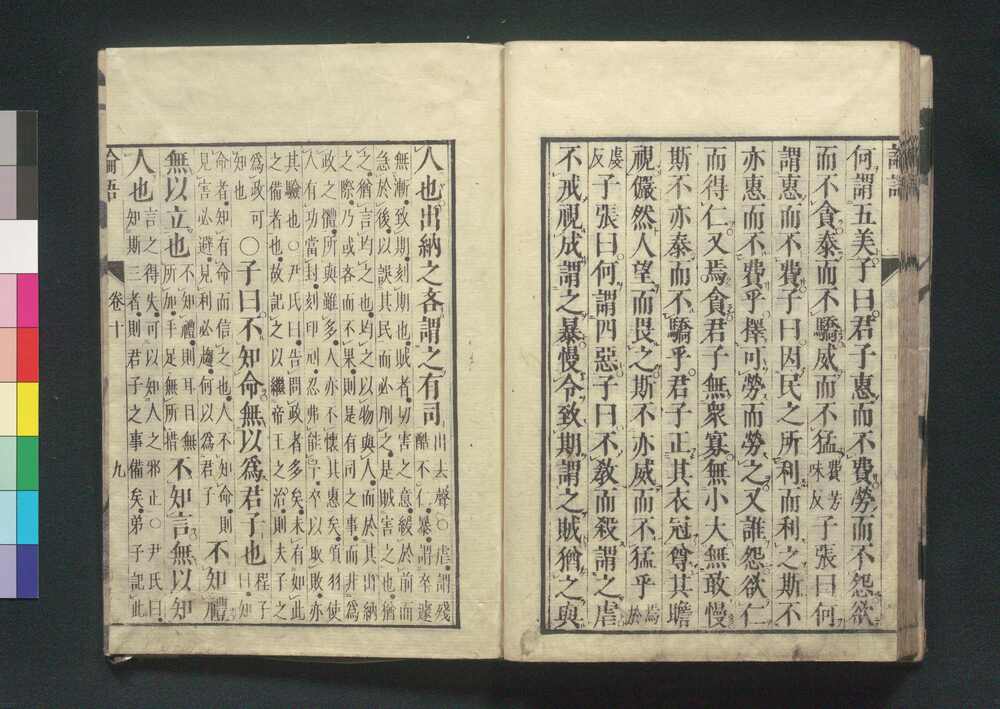 何謂五美子曰君子惠而不費勞而不怨欲
而不貪泰而不驕威而不猛費芳味反子張曰何
謂惠而不費子曰因民之所利而利之斯不
亦惠而不費乎擇可勞而勞之又誰怨欲仁
而得仁又焉貪君子無衆寡無小大無敢慢
斯不亦泰而不驕乎君子正其衣冠尊其瞻
視儼然人望而畏之斯不亦威而不猛乎焉於
虔反子張曰何謂四惡子曰不教而殺謂之虐
不戒視成謂之暴慢令致期謂之賊猶之與
人也出納之吝謂之有司出去聲○虐謂殘酷不仁暴謂卒遽
無漸致期刻期也賊者切害之意緩於前而
急於後以誤其民而必刑之是賊害之也猶
之猶言均之也均之以物與人而於其出納
之際乃或吝而不果則是有司之事而非爲
政之體所與雖多人亦不懷其惠矣項羽使
人有功當封刻印刓忍弗能予卒以取敗亦
其驗也○尹氏曰告問政者多矣未有如此
之備者也故記之以繼帝王之治則夫子之
爲政可知也○子曰不知命無以爲君子也程子曰知
命者知有命而信之也人不知命則見害必避見利必趨何以爲君子不知禮
無以立也不知禮則耳目無所加手足無所措不知言無以知
人也言之得失可以知人之邪正○尹氏曰知斯三者則君子之事備矣弟子記此
論語
卷十
九